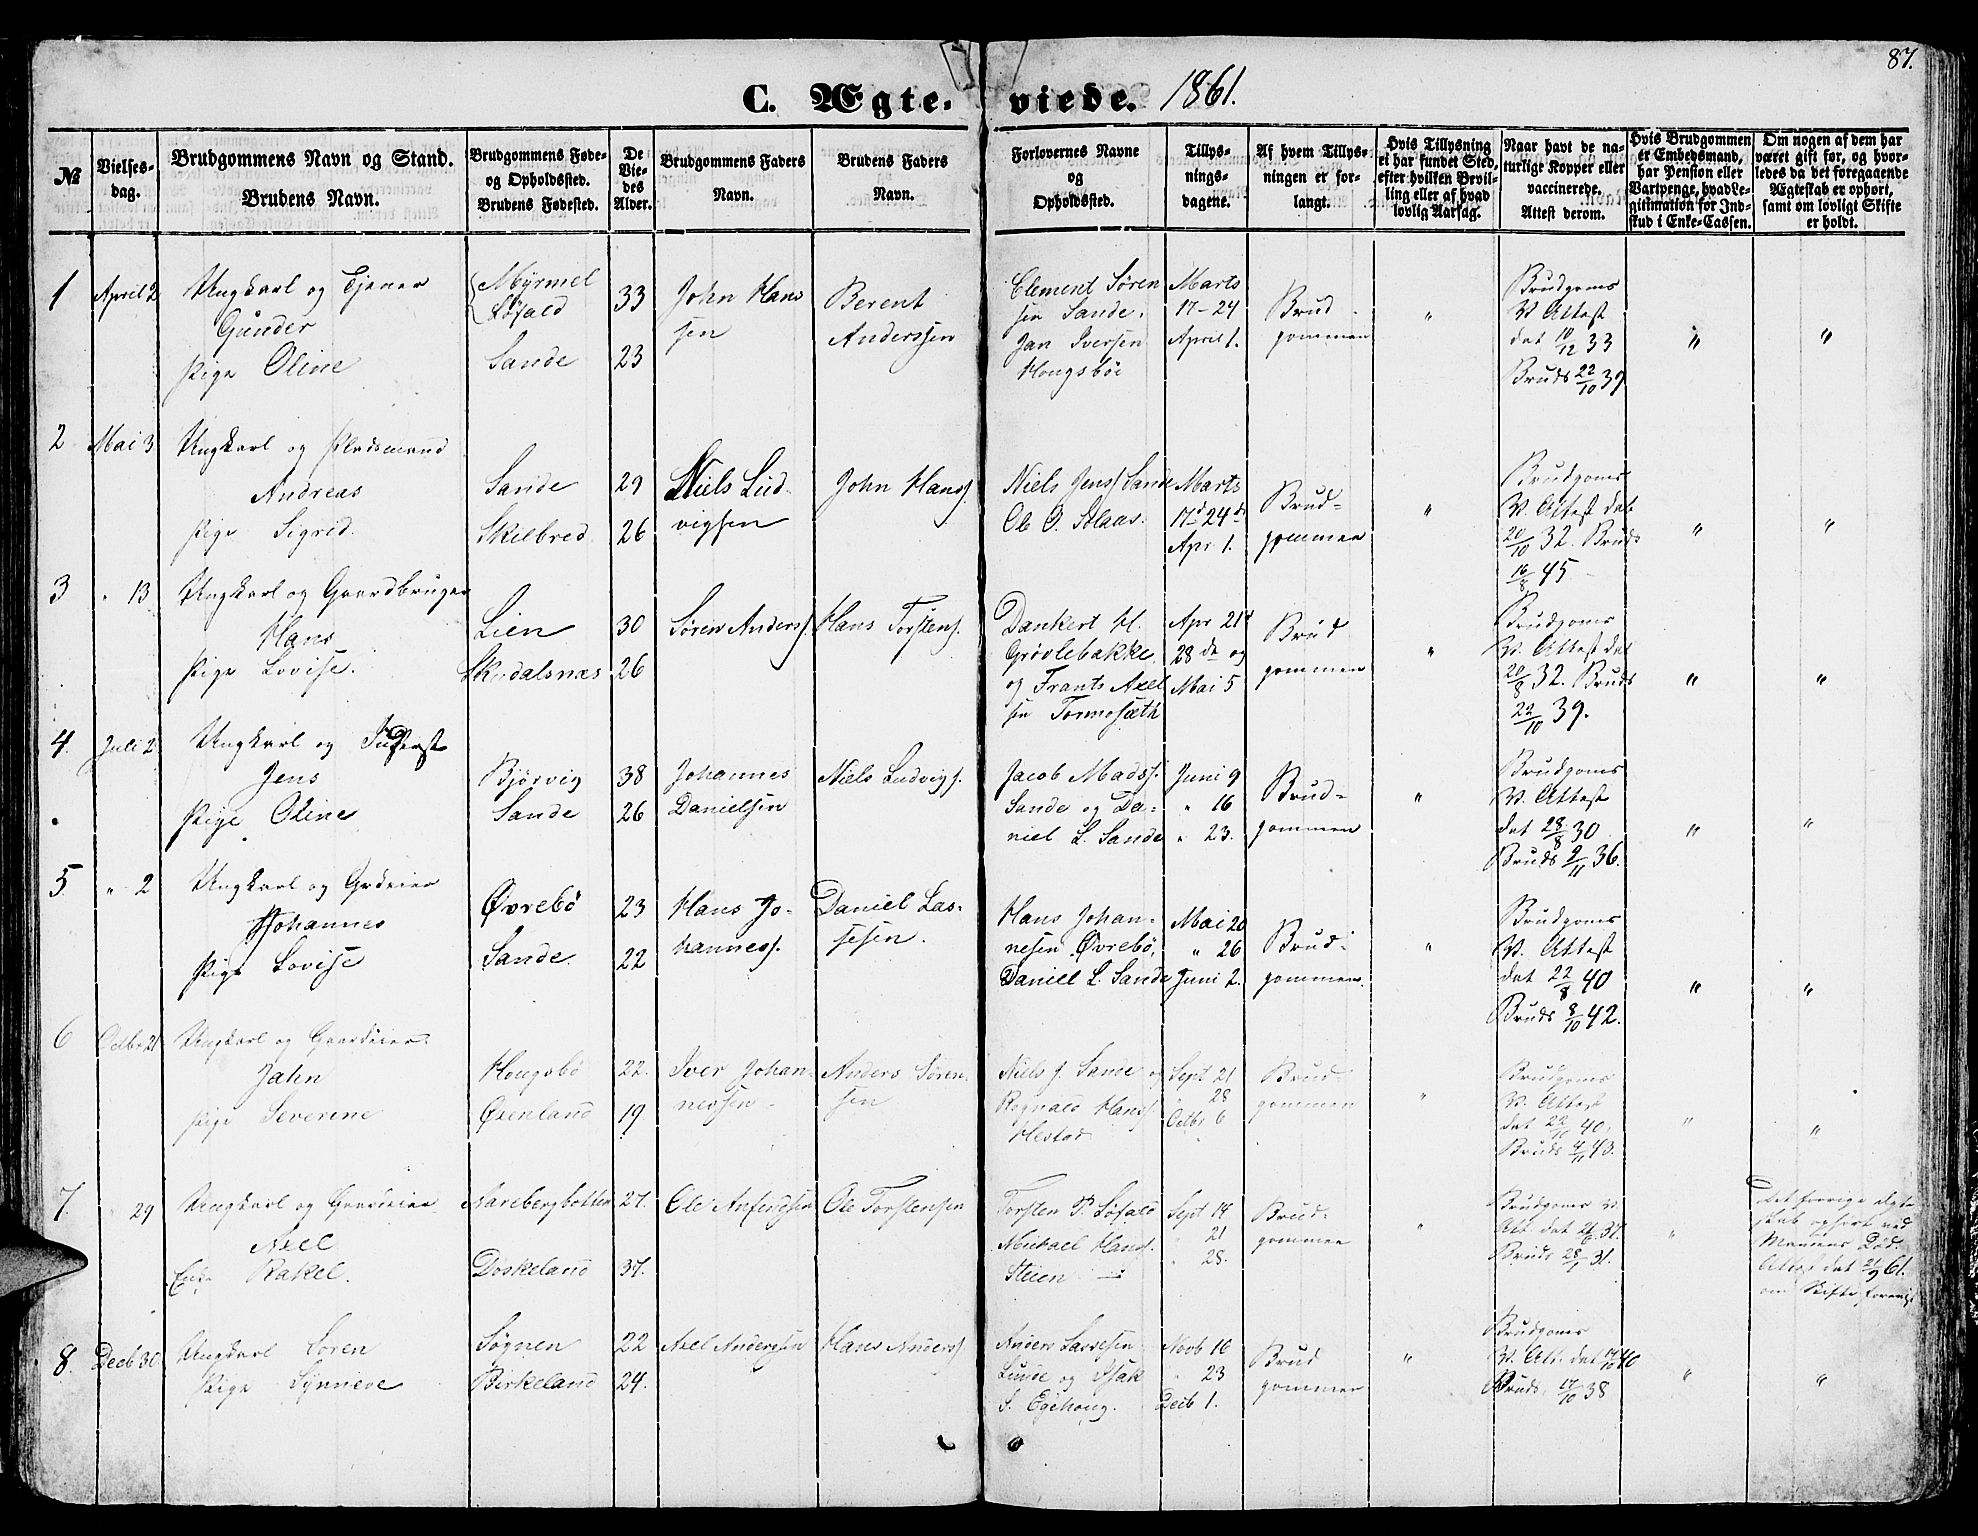 87.
C. Ægte- viede. 1861.
№
Vielses-
dag.
Brudgommens Navn og Stand.
Brudens Navn.
Brudgommens Føde-
og Opholdssted.
Brudens Fødested.
De
Vie-
des
Alder.
Brudgommens Faders
Navn.
Brudens Faders
Navn.
Forlovernes Navne
og
Opholdssted.
Tillys-
nings-
dagene.
Af hvem Tillys-
ningen er for-
langt.
Hvis Tillysning
ei har fundet Sted,
efter hvilken Bevil-
ling eller af hvad
lovlig Aarsag.
Naar havt de na-
turlige Kopper eller
vaccinerede.
Attest derom.
Hvis Brudgommen
er Embedsmand,
har Pension eller
Vartpenge, hvad Le-
gitimation for Ind-
skud i Enke-Cassen.
Om nogen af dem har
været gift før, og hvor-
ledes da det foregaaende
Ægteskab er ophørt,
samt om lovligt Skifte
er holdt.
1 April 2
Ungkarl og Tjener
Gunder
Pige Oline
Myrmel
Løfald
Sande
33
23
John Han
sen
Berent
Anderssen
Clement Søren
sen Sande.
Jan Iversen
Hougsbøe
Marts
17-24
April 1.
Brud
gommen
"
Brudgoms
V. Attest
det 10/12 33
Bruds 22/10 39
"
"
2 Mai 3
Ungkarl og Pladsmand
Andreas
Pige Sigrid.
Sande
Skilbred
29
26
Niels Lud-
vigsen
John Hanss.
Niels Jenss. Sande
Ole O. Aaas.
Marts
17d 24de
Apr 1.
Brud-
gommen
"
Brudgoms
V. Attest det
20/10 32. Bruds
16/8 45
"
"
3 " 13
Ungkarl og Gaardbruger
Hans
Pige Lovise.
Lien
Skredalsnæs
30
26
Søren Anderss.
Hans Torstens.
Dankert H.
Grøvlebakke.
og Frants Axel
sen Tormosæth
Apr 21d
28de og
Mai 5
Brud
gommen
"
Brudgoms
V. Attest det
20/8 32. Bruds
22/10 39.
"
"
4. Juli 2
Ungkarl og Inderst
Jens
Pige Oline
Bjørvig
Sande
38
26
Johannes
Danielsen
Niels Ludvigs.
Jacob Madss.
Sande og Da-
niel L. Sande
Juni 9
" 16
" 23.
Brud-
gommen
"
Brudgoms
V. Attest
det 28/8 30
Bruds 9/11 36.
"
"
5 " 2
Ungkarl og Grdeier
Johannes
Pige Lovise
Øvrebø
Sande.
23
22
Hans Jo-
hanness.
Daniel Las-
sesen.
Hans Johan-
nesen Øvrebø,
Daniel L. Sande
Mai 20
" 26
Juni 2.
Brud-
gommen.
"
Brudgoms
V. Attest
det 22/8 40
Bruds 8/10 42.
"
"
6 Octbr 21
Ungkarl og Gaardeier.
Jahn
Pige Severine
Hougsbø
Øxenland
22.
19
Iver Johan-
nessen
Anders Søren-
sen
Niels J. Sande og
Regnald Hanss.
Hestad
Sept 21
" 28
Octbr 6
Brud-
gommen
"
Brudgoms
V. Attest
det 22/10 40.
Bruds 4/11 43.
"
"
7 " 29
Ungkarl og Gaardeier
Axel
Enke Rakel.
Aarebergbotten
Døskeland
27.
37.
Ole Anfindsen
Ole Torstensen
Torsten P. Løfald
Michael Hanss.
Steien
Sept 14
" 21
" 28.
Brud-
gommen
"
Brudgoms V.
Att. det 26/6 37.
Bruds 28/1 31.
"
Det forrige Ægte
skab ophørt ved
Mandens Død.
Attest det 21/9 61.
om Skifte forevist
8. Decb 30
Ungkarl Søren
Pige Synneve
Søgnen
Birkeland
22
24.
Axel Anderssen
Hans Anderss.
Anders Lassesen
Lunde og Isak
S. Egehoug.
Novb 16
" 23
Decb 1.
Brud
gommen
"
Brudgoms
V. Att. det 14/10 40
Bruds 17/10 38
"
"